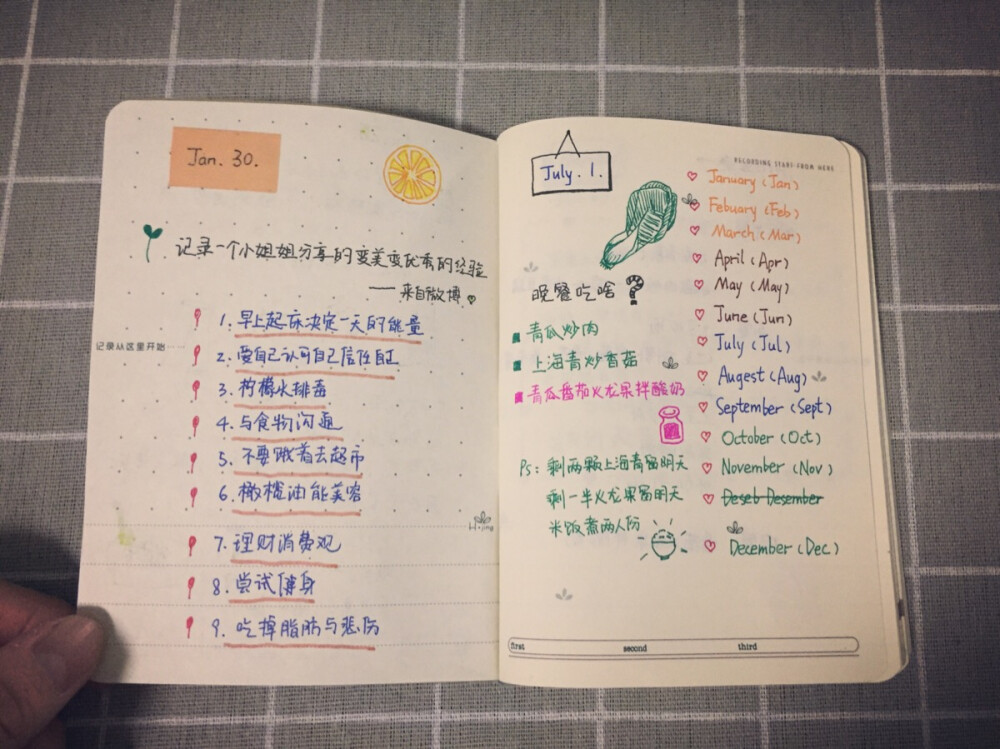 Jan. 30.
记录一个小姐姐分享的变美变优秀的经验
——来自微博
1. 早上起床决定一天的能量
记录从这里开始
2. 爱自己认可自己信任自己
3. 柠檬水排毒
4. 与食物沟通
5. 不要饿着去超市
6. 橄榄油能美容
7. 理财消费观
8. 尝试健身
9. 吃掉脂肪与悲伤
July. 1.
RECORDING START FROM HERE
January (Jan)
Febuary (Feb)
March (Mar)
April (Apr)
May (May)
June (Jun)
July (Jul)
Augest (Aug)
September (Sept)
October (Oct)
November (Nov)
Deseb Desember
December (Dec)
晚餐吃啥?
青瓜炒肉
上海青炒香菇
青瓜番茄火龙果拌酸奶
Ps: 剩两颗上海青留明天
剩一半火龙果留明天
米饭煮两人份
first second third